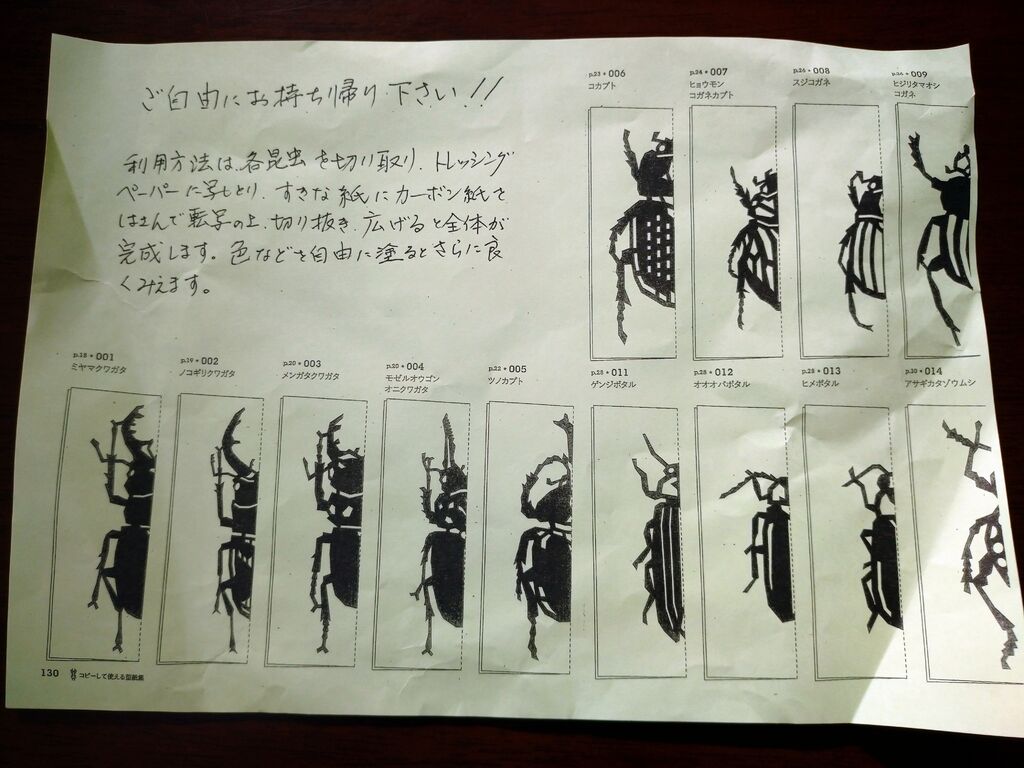 ご自由にお持ち帰り下さい!!
利用方法は、各昆虫を切り取り、トレッシング
ペーパーに写しとり、すきな紙にカーボン紙を
はさんで転写の上、切り抜き、広げると全体が
完成します。色などを自由に塗るとさらに良
くみえます。
p.23 • 006
コカブト
p.24 • 007
ヒョウモン
コガネカブト
p.26 • 008
スジコガネ
p.26 • 009
ヒジリタマオシ
コガネ
p.18 • 001
ミヤマクワガタ
p.19 • 002
ノコギリクワガタ
p.20 • 003
メンガタクワガタ
p.20 • 004
モゼルオウゴン
オニクワガタ
p.22 • 005
ツノカブト
p.28 • 011
ゲンジボタル
p.28 • 012
オオオバボタル
p.28 • 013
ヒメボタル
p.30 • 014
アサギカタゾウムシ
130 コピーして使える型紙集